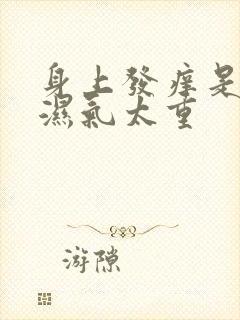 身上發痒是
濕氣太重
游隙